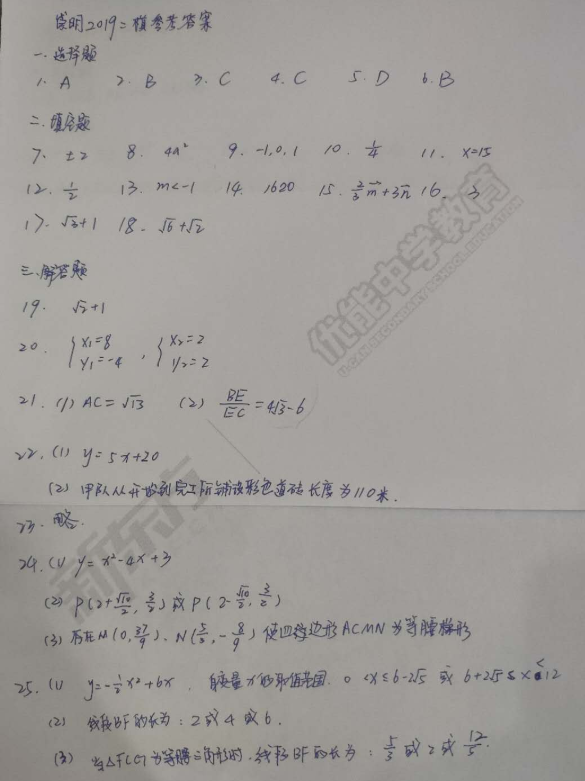 崇明2019二模参考答案
一、选择题
1. A 2. B 3. C 4. C 5. D 6. B
二、填空题
7. ±2 8. 4a² 9. -1,0,1 10. 1/4 11. x=15
12. 1/2 13. m<-1 14. 1620 15. 2/3 m⃗+3n⃗ 16. 3
17. √3+1 18. √6+√2
三、解答题
19. √2+1
20. { x₁=8 y₁=-4 , { x₂=2 y₂=2
21. (1) AC=√13 (2) BE/EC=4√3-6
22. (1) y=5x+20
(2) 甲队从开始到完工所铺设彩色道砖长度为110米.
23. 略.
24. (1) y=x²-4x+3
(2) P(2+√10/2, 3/2)或P(2-√10/2, 3/2)
(3) 存在M(0, 37/9)、N(5/3, -8/9)使四边形ACMN为等腰梯形
25. (1) y=-1/2x²+6x, 自变量x的取值范围. 0<x≤6-2√5 或 6+2√5≤x<12
(2) 线段BF的长为:2或4或6.
(3) 当△FCG为等腰三角形时,线段BF的长为:5/3或2或12/5.
优能中学教育
U-CAN SECONDARY SCHOOL EDUCATION
新东方